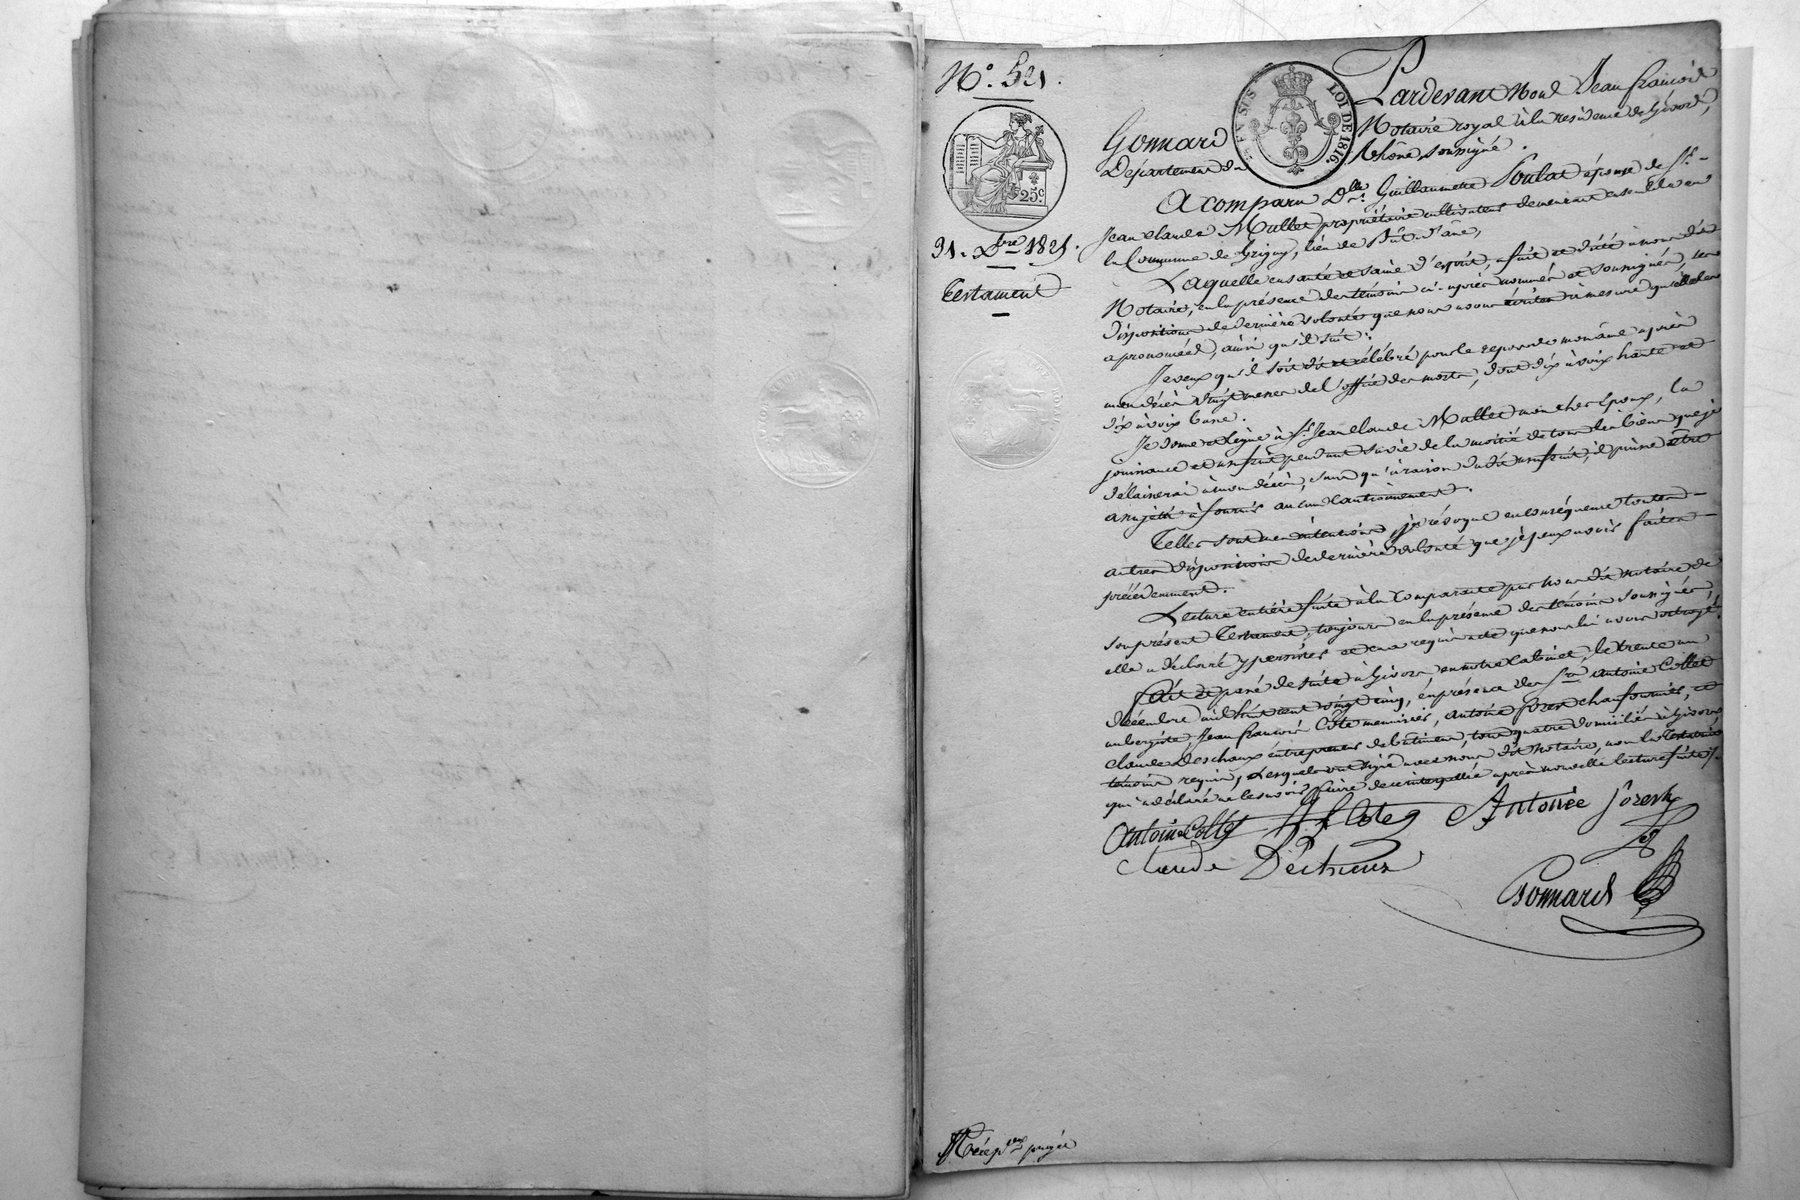 N.º 521.
25c
31. Xbre 1825.
Testament
EN SUS
LOI DE 1816.
Pardevant Nous Jean françois
Gonnard Notaire royal à la résidence de Givors,
Département du Rhône soussigné.
A comparu Dlle. Guillaumette Soulat épouse de Sr.
Jean Claude Mallet propriétaire cultivateur demeurant ensemble en
la Commune de Grigny, lieu de
Laquelle en santé et saine d'esprit, a fait et dicté à nous dit
Notaire, en la présence des témoins ci-après nommés et soussignés, les
dispositions de dernière volonté que nous avons écrites à mesure qu'elle les a
a prononcées, ainsi qu'il suit:
Je veux qu'il soit dit et célébré pour le repos de mon âme après
mon décès vingt messes de l'office des morts, dont dix à voix haute et
dix à voix basse.
Je donne et lègue à Sr. Jean Claude Mallet mon cher Epoux, la
jouissance et usufruit pendant sa vie de la moitié de tous les biens que je
délaisserai à mon décès, sans qu'à raison dudit usufruit, il puisse être
assujetti à fournir aucun cautionnement.
Telles sont mes intentions, je révoque en conséquence toutes
autres dispositions de dernière volonté que je peux avoir faites
précédemment.
Lecture entière faite à la comparante par nous dit notaire de
son présent Testament, toujours en la présence des témoins soussignés,
elle a déclaré y persister et en a requis acte que nous lui avons octroyé.
Fait et passé de suite à Givors, en notre cabinet, le trente un
décembre mil huit cent vingt cinq, en présence des Srs. Antoine Collet
aubergiste, Jean françois Côte menuisier, Antoine forest chaufournier, et
Claude Deschaux entrepreneur de bâtiment, tous quatre domiciliés à Givors
témoins requis, lesquels ont signé avec nous dit Notaire, non la Testatrice
qui a déclaré ne le savoir faire de ce interpellée après nouvelle lecture faite.
Antoine Collet J. f. Cote Antoine forest
Claude Déchaux
Gonnard